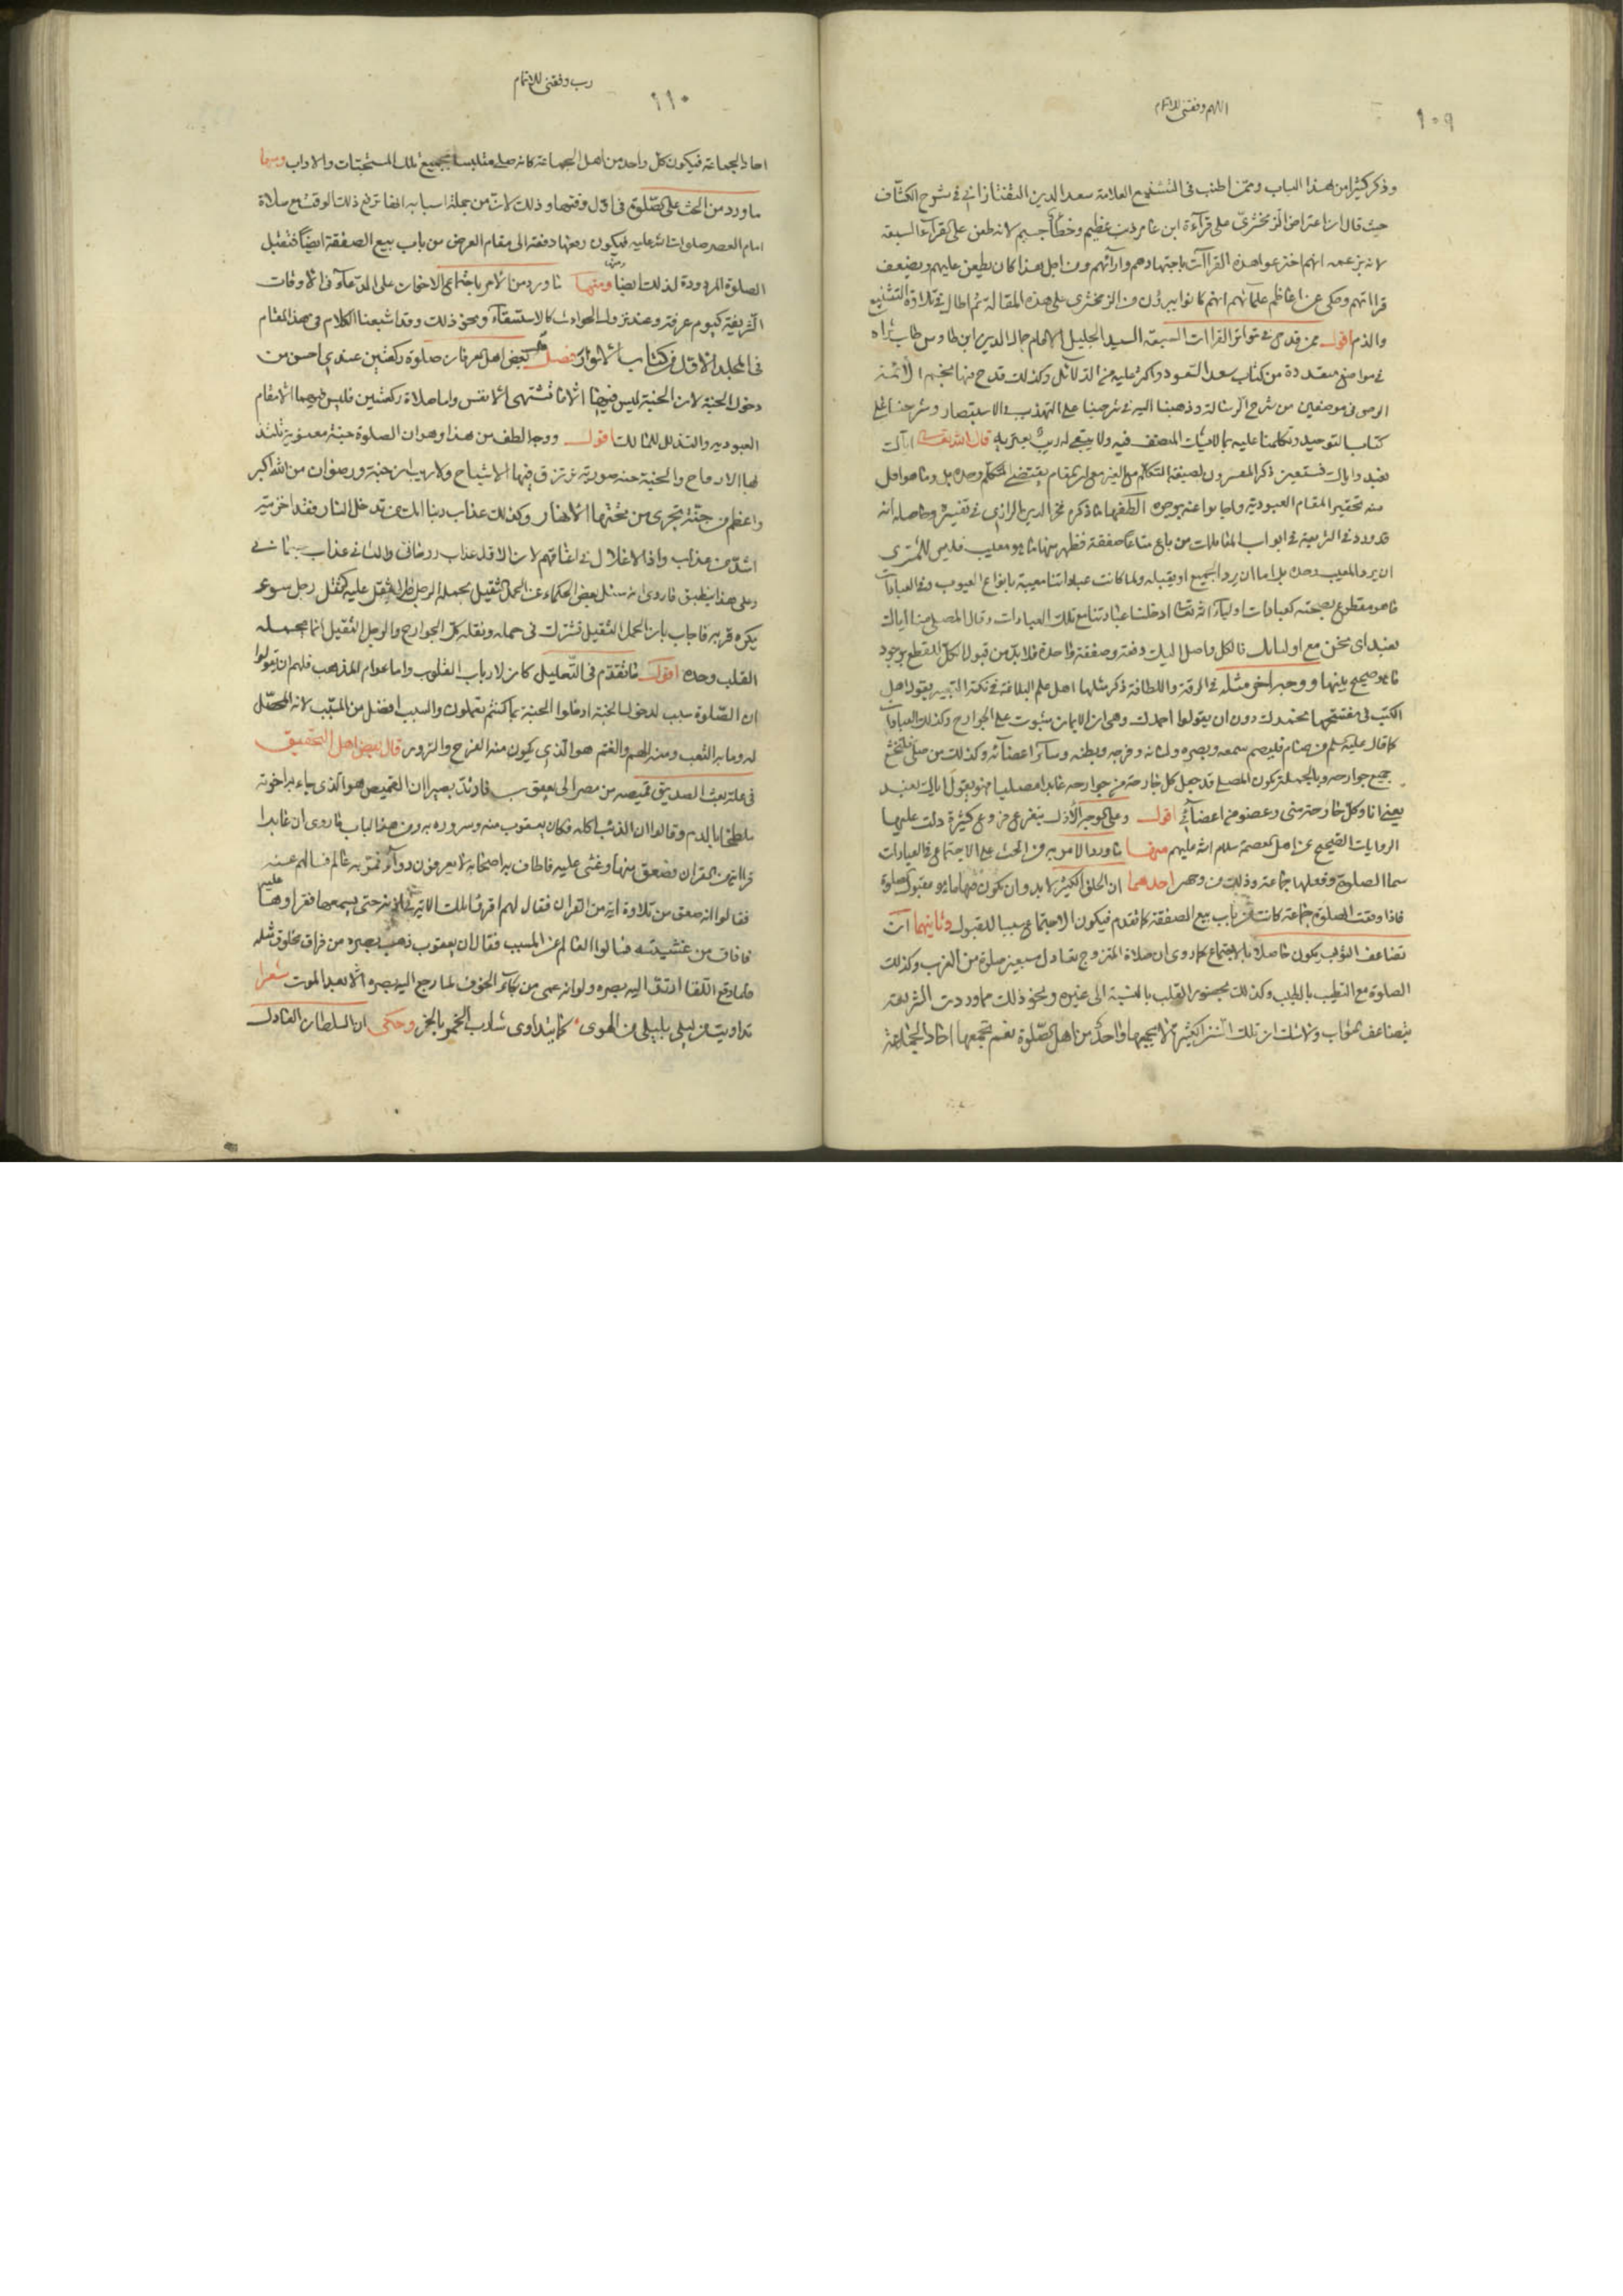 ١٠٩
اللهم وفقنى للاتمام
وذكر كثيرا من هذا الباب وممن اطنب فى التشنيع العلامة سعد الدين التفتازانى فى شرح الكشاف
حيث قال ان اعتراض الزمخشرى على قراءة ابن عامر ذنب عظيم وخطأ جسيم لانه طعن على القراء السبعة
لانه بزعمه انهم اخترعوا هذه القراآت باجتهادهم وارائهم ومن اجل هذا كان يطعن عليهم ويضعف
قراءتهم وحكى عن اعاظم علمائهم انهم كانوا يبرؤن من الزمخشرى على هذه المقالة ثم اطال فى التشنيع
والذم اقول ممن قدح فى تواتر القراات السبعة السيد الجليل الامام جمال الدين ابن طاوس طاب ثراه
فى مواضع متعددة من كتاب سعد السعود واكثر عليه من الدلائل وكذلك قدح فيها نجم الائمة
الرضى فى موضعين من شرح الرسالة وذهبنا اليه فى شرحينا على التهذيب والاستبصار وشرحنا على
كتاب التوحيد وتكلمنا عليه بما لا يشك المنصف فيه ولا يبقى له ريب يعتريه قال الله تعالى اياك
نعبد واياك نستعين ذكر المفسرون لصيغة المتكلم مع الغير مع ان المقام يقتضى المتكلم وحده بل وما هو اقل
منه تحقيرا لمقام العبودية واجابوا عنه بوجوه الطفها ما ذكره فخر الدين الرازى فى تفسيره وحاصله انه
قد ورد فى الشريعة فى ابواب المعاملات من باع متاعا صفقة فظهر منها ما هو معيب فليس للمشترى
ان يرد المعيب وحده بل اما ان يرد الجميع او يقبله ولما كانت عباداتنا معيبة بانواع العيوب وفى العبادات
ما هو مقطوع بصحته كعبادات اولياء الله تعالى ادخلنا عبادتنا مع تلك العبادات وقال المصلى منا اياك
نعبد اى نحن مع اوليائك فالكل واصل اليك دفعة وصفقة واحدة فلا بد من قبول الكل للقطع بوجود
ما هو صحيح بينها ووجه اخر مثله فى الرقة واللطافة ذكر مثلها اهل علم البلاغة فى نكتة التعبير بقول اهل
الكتب فى مفتتحها نحمدك دون ان يقولوا احمدك وهى ان الايمان مبثوث على الجوارح وكذلك العبادات
كما قال عليه السلم من صام فليصم سمعه وبصره ولسانه وفرجه وبطنه وسائر اعضائه وكذلك من صلى فليخشع
جميع جوارحه وبالجملة يكون المصلى قد جعل كل جارحة من جوارحه عابدا مصليا فهو يقول اياك نعبد
يعنى انا وكل جارحة منى وعضو من اعضائى اقول وعلى الوجه الاول يتفرع فروع كثيرة دلت عليها
الروايات الصحيح عن اهل العصمة سلام الله عليهم منها ما ورد الامر به من الحث على الاجتماع فى العبادات
سيما الصلوة وفعلها جماعة وذلك من وجهين احدهما ان الخلق الكثير لا بد وان يكون فيها ما هو مقبول الصلوة
فاذا وقعت الصلوة جماعة كانت من باب بيع الصفقة كما تقدم فيكون الاجتماع سببا للقبول وثانيهما ان
تضاعف الثواب يكون حاصلا بالاجتماع كما روى ان صلاة المتزوج تعادل سبعين صلوة من العزب وكذلك
الصلوة مع التطيب بالطيب وكذلك بحضور القلب بالنسبة الى غيره ونحو ذلك مما وردت الشريعة
بتضاعف الثواب ولا شك ان تلك السنن الكثيرة لا يجمعها واحد من اهل الصلوة نعم تجمعها احاد الجماعة
١١٠
رب وفقنى للاتمام
احاد الجماعة فيكون كل واحد من اهل الجماعة كانه صلى متلبسا بجميع تلك المستحبات والاداب ومنها
ما ورد من الحث على الصلوة فى اول وقتها وذلك لان من جملة اسبابه انها ترفع ذلك الوقت مع صلاة
امام العصر صلوات الله عليه فيكون رفعها دفعة الى مقام العرض من باب بيع الصفقة ايضا فتقبل
الصلوة المردودة لذلك ايضا ومنها ما ورد من الامر باجتماع الاخوان على الدعاء فى الاوقات
الشريفة كيوم عرفة وعند نزول الحوادث كالاستسقاء ونحو ذلك وقد اشبعنا الكلام فى هذا المقام
فى المجلد الاول من كتاب الانوار فصل قال بعض اهل العرفان صلوة ركعتين عندى احسن من
دخول الجنة لان الجنة ليس فيها الا ما تشتهى الانفس واما صلاة ركعتين فليس فيهما الا مقام
العبودية والتذلل للمالك اقول ووجه الطف من هذا وهو ان الصلوة جنة معنوية تلتذ
بها الارواح والجنة جنة صورية ترتزق فيها الاشباح ولا ريب ان جنة ورضوان من الله اكبر
واعظم من جنة تجرى من تحتها الانهار وكذلك عذاب ربنا انك من تدخل النار فقد اخزيته
اشد من عذاب واذا الاغلال فى اعناقهم لان الاول عذاب روحانى والثانى عذاب جسمانى
وعلى هذا ينطبق ما روى انه سئل بعض الحكماء عن الحمل الثقيل يحمله الرجل ولا يثقل عليه كثقل رجل سوء
يكره قربه فاجاب بان الحمل الثقيل تشترك فى حمله ونقله كل الجوارح والرجل الثقيل انما يحمله
القلب وحده اقول ما تقدم فى التعليل كان لارباب القلوب واما عوام المذهب فلهم ان يقولوا
ان الصلوة سبب لدخول الجنة ادخلوا الجنة بما كنتم تعملون والسبب افضل من المسبب لانه المحصل
له وما به التعب ومنه الهم والغم هو الذى يكون منه الفرج والسرور قال بعض اهل التحقيق
فى علة بعث الصديق قميصه من مصر الى يعقوب فارتد بصيرا ان القميص هو الذى جاء به اخوته
ملطخا بالدم وقالوا ان الذئب اكله فكان يعقوب منه وسروره به ومن هذا الباب ما روى ان عابدا
قرا اية من القران فصعق منها وغشى عليه فاطاف به اصحابه لا يعرفون دوائه فمر به عالم فسالهم عنه
فقالوا انه صعق من تلاوة اية من القران فقال لهم اقرؤا تلك الاية فى اذنه حتى يسمعها فقراوها عليه
فافاق من غشيته فسالوا العالم عن السبب فقال ان يعقوب ذهب بصره من فراق مخلوق مثله
فلما وقع اللقا ارتد اليه بصره ولو انه عمى من بكاء الخوف لما رجع اليه بصره الا بعد الموت شعرا
تداويت من ليلى بليلى من الهوى كما يتداوى شارب الخمر بالخمر وحكى ان السلطان العادل